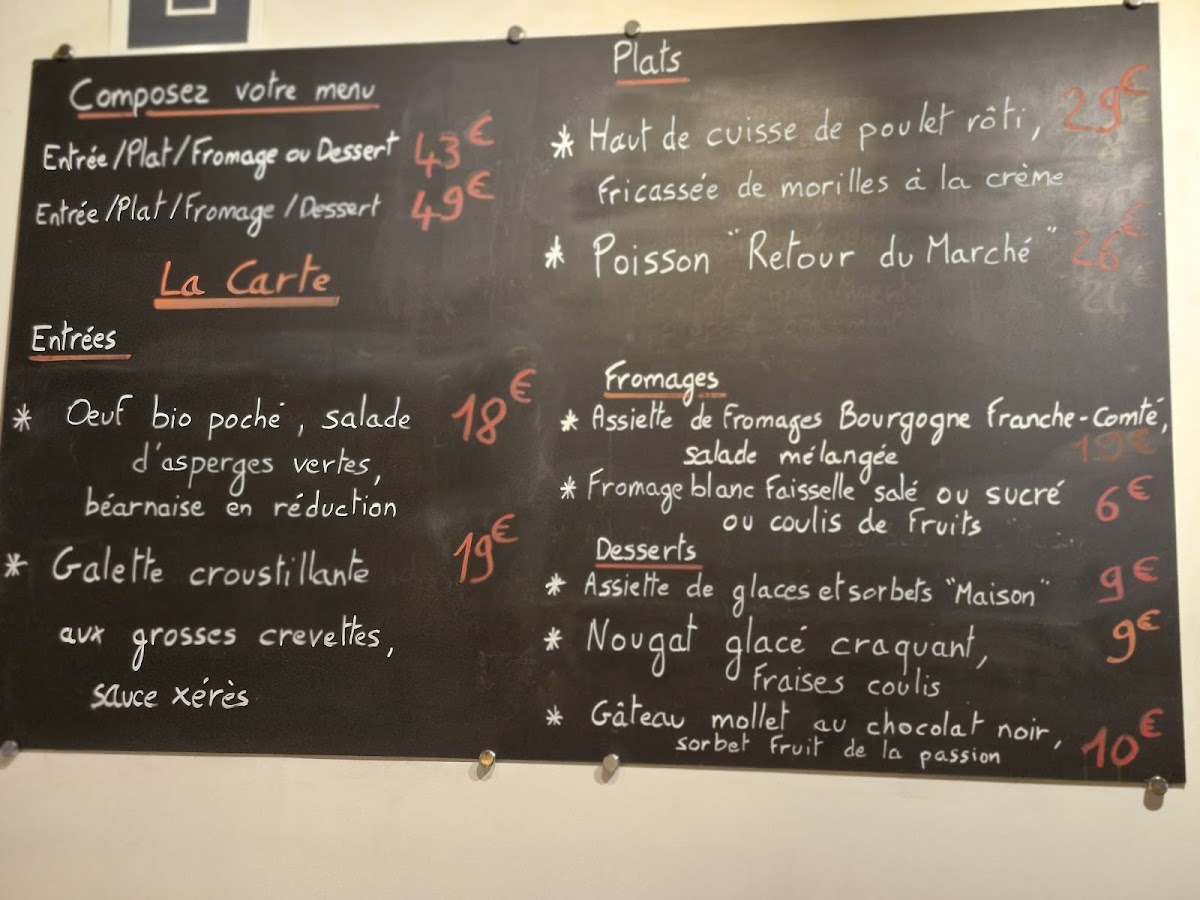 Composez votre menu
Entrée/Plat/Fromage ou Dessert 43€
Entrée/Plat/Fromage/Dessert 49€
La Carte
Entrées
* Oeuf bio poché, salade 18€
d'asperges vertes,
béarnaise en réduction
* Galette croustillante 19€
aux grosses crevettes,
sauce xérès
Plats
* Haut de cuisse de poulet rôti, 29€
fricassée de morilles à la crème
* Poisson "Retour du Marché" 26€
Fromages
* Assiette de Fromages Bourgogne Franche-Comté,
salade mélangée
* Fromage blanc Faisselle salé ou sucré 6€
ou coulis de Fruits
Desserts
* Assiette de glaces et sorbets "Maison" 9€
* Nougat glacé craquant, 9€
Fraises coulis
* Gâteau mollet au chocolat noir, 10€
sorbet Fruit de la passion